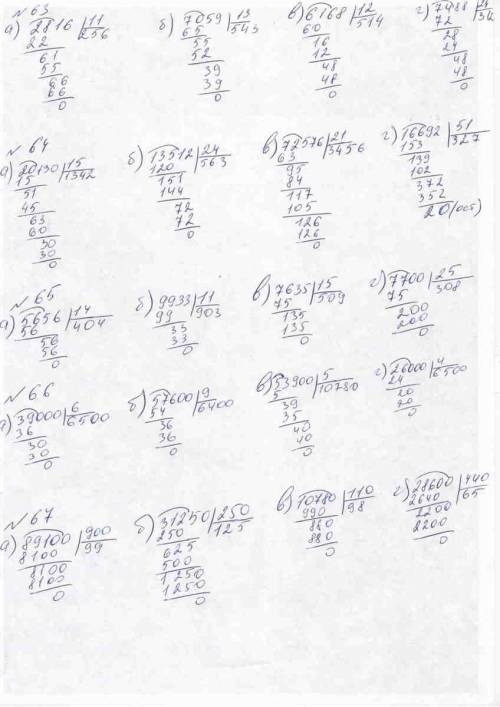 № 63
а) 2816 | 11
22 | 256
61
55
66
66
0
б) 7059 | 13
65 | 543
55
52
39
39
0
в) 6168 | 12
60 | 514
16
12
48
48
0
г)
72
28
24
48
48
0
№ 64
а) 20130 | 15
15 | 1342
51
45
63
60
30
30
0
б) 13512 | 24
120 | 563
151
144
72
72
0
в) 72576 | 21
63 | 3456
95
84
117
105
126
126
0
г) 16692 | 51
153 | 327
139
102
372
352
20 (ост)
№ 65
а) 5656 | 14
56 | 404
56
56
0
б) 9933 | 11
99 | 903
33
33
0
в) 7635 | 15
75 | 509
135
135
0
г) 7700 | 25
75 | 308
200
200
0
№ 66
а) 39000 | 6
36 | 6500
30
30
0
б) 57600 | 9
54 | 6400
36
36
0
в) 53900 | 5
5 | 10780
39
35
40
40
0
г) 26000 | 4
24 | 6500
20
20
0
№ 67
а) 89100 | 900
8100 | 99
8100
8100
0
б) 31250 | 250
250 | 125
625
500
1250
1250
0
в) 10780 | 110
990 | 98
880
880
0
г) 28600 | 440
2640 | 65
2200
2200
0